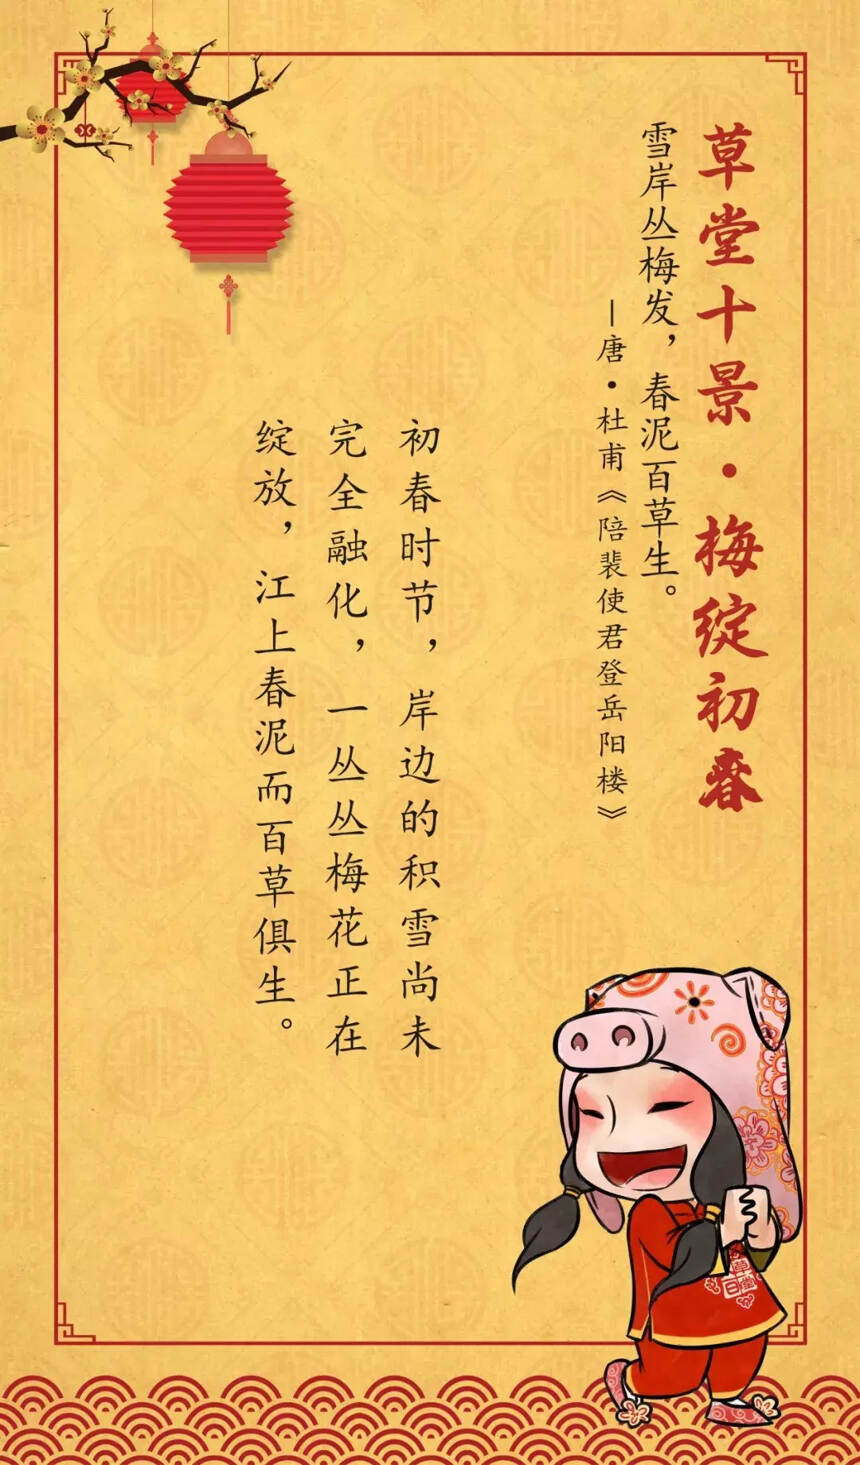 草堂十景·梅绽初春
雪岸丛梅发，春泥百草生。
—唐·杜甫《陪裴使君登岳阳楼》
初春时节，岸边的积雪尚未
完全融化，一丛丛梅花正在
绽放，江上春泥而百草俱生。